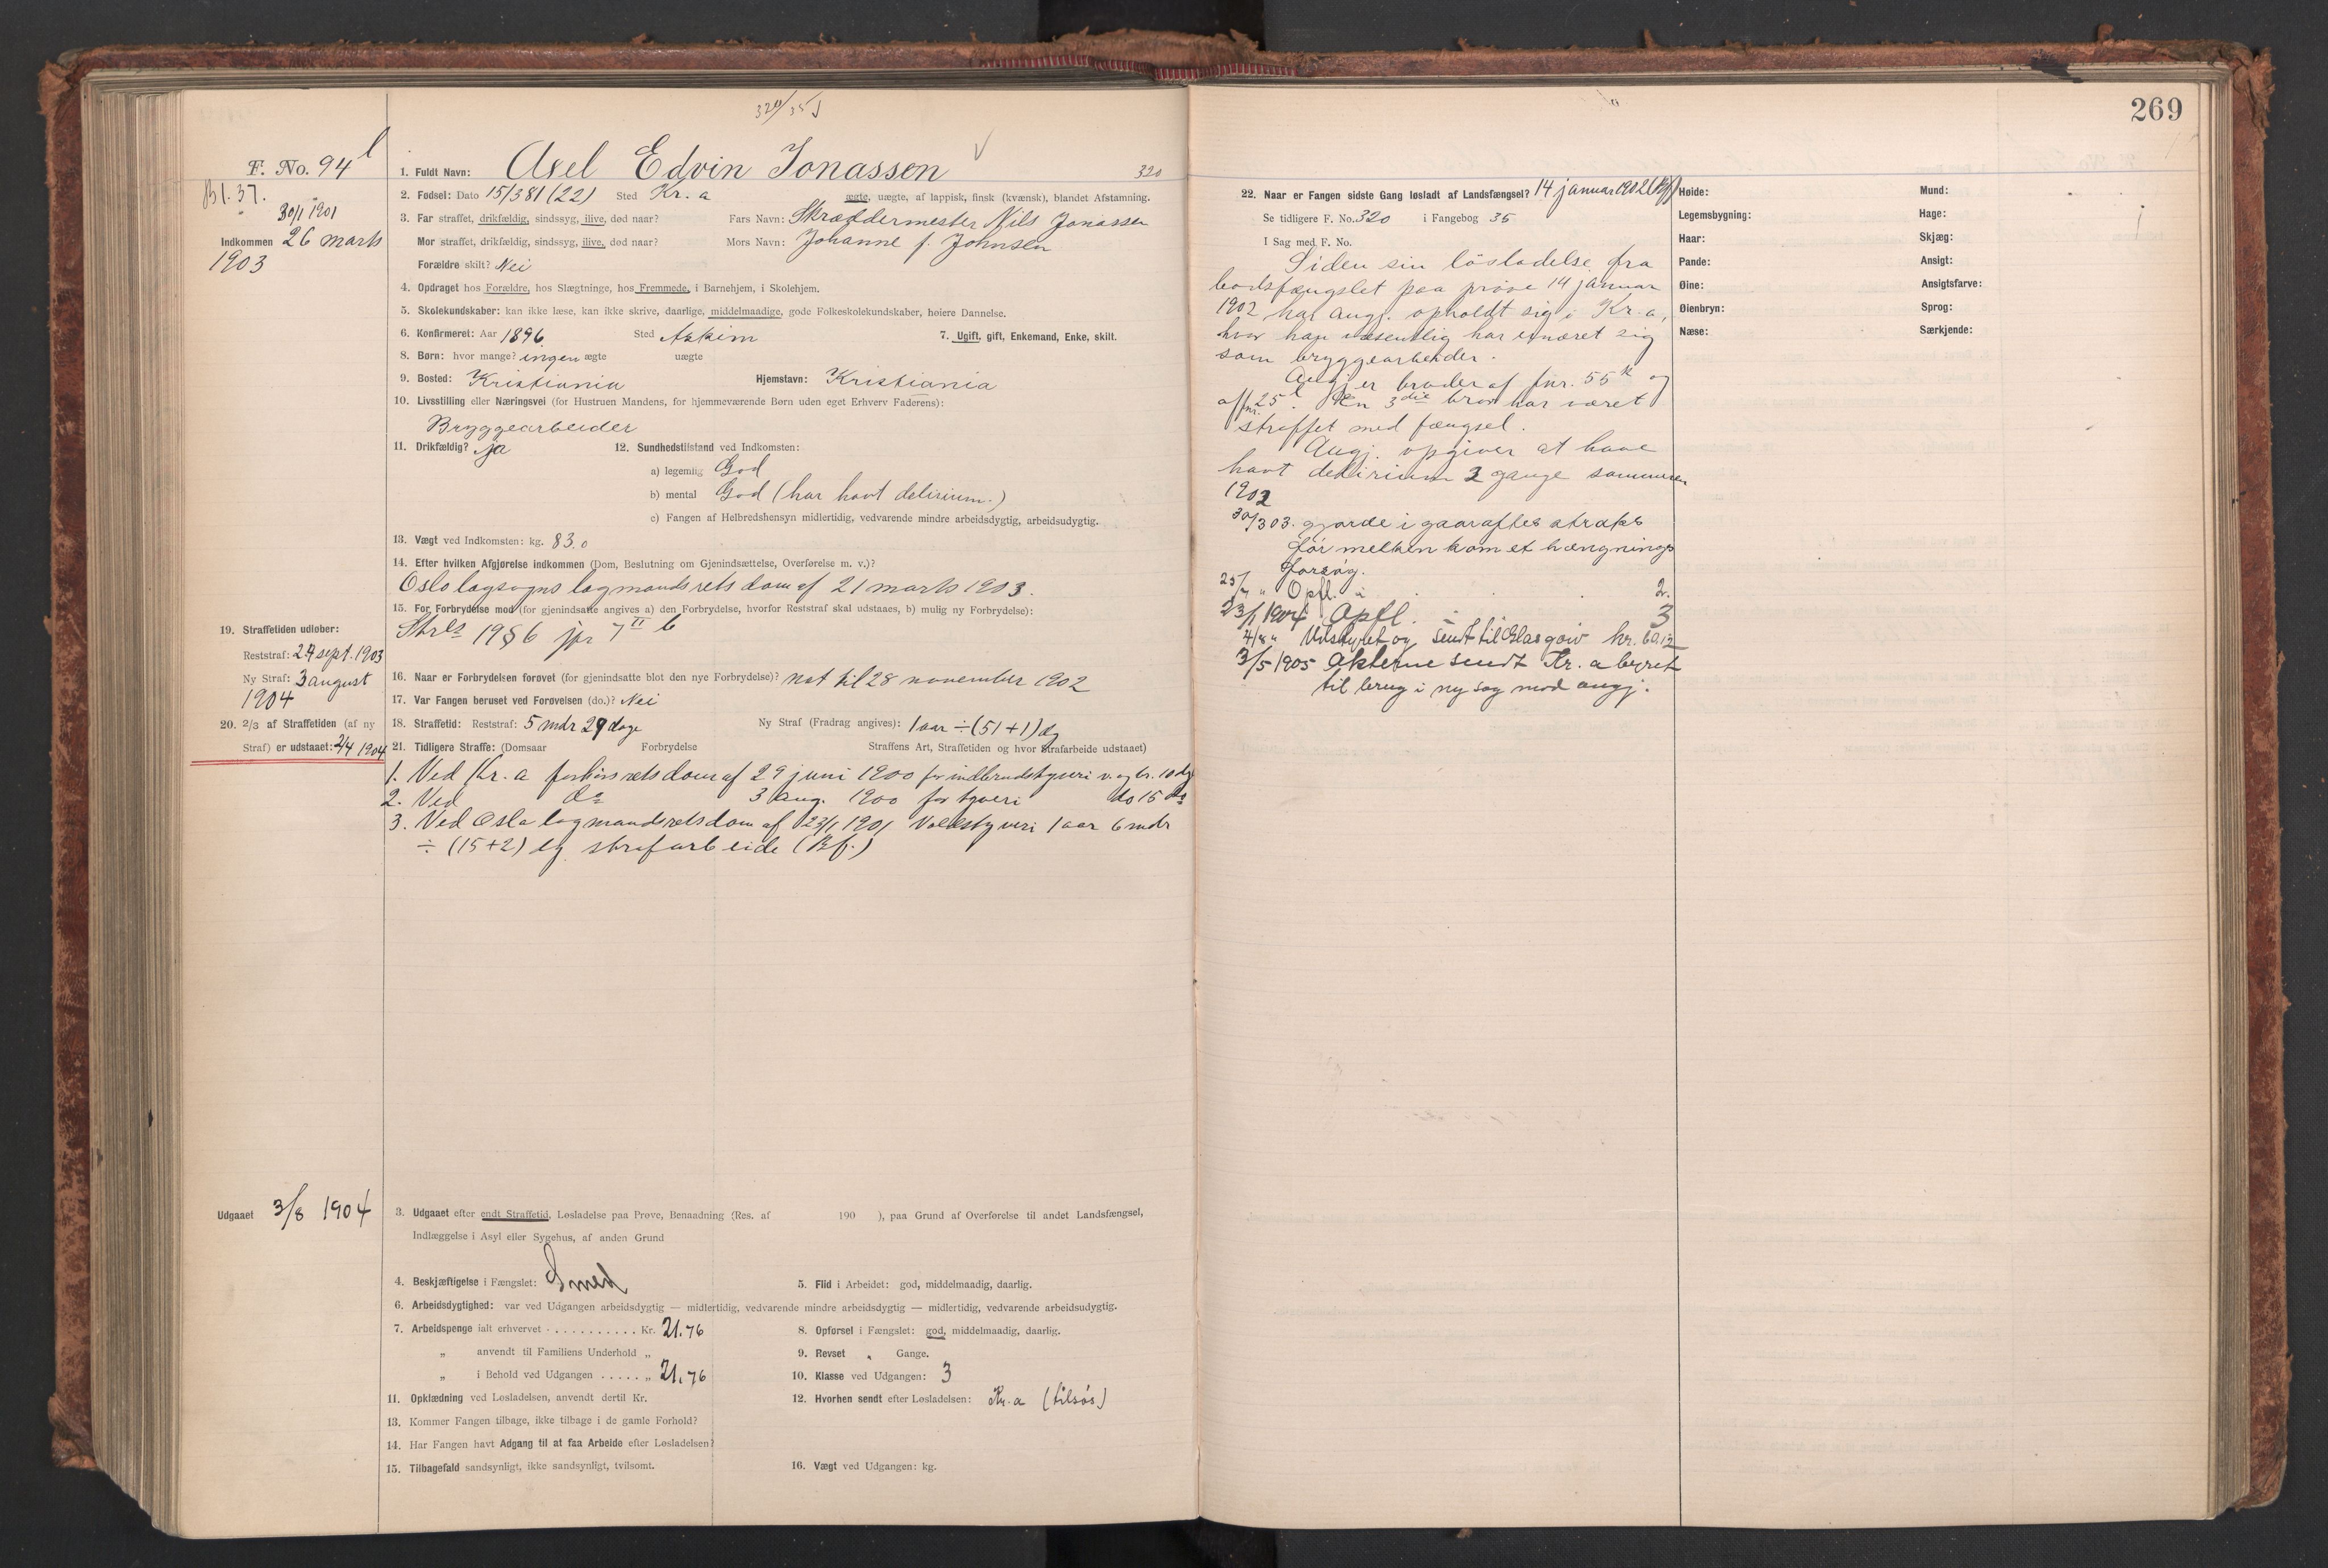 320/35 J
F. No. 94 l
1. Fuldt Navn: Axel Edvin Jonassen
320
Bl. 37.
30/1 1901
Indkommen 26 marts
1903
2. Fødsel: Dato 15/3 81 (22) Sted Kr. a ægte, uægte, af lappisk, finsk (kvænsk), blandet Afstamning.
3. Far straffet, drikfældig, sindssyg, ilive, død naar? Fars Navn: Skræddermester Nils Jonassen
Mor straffet, drikfældig, sindssyg, ilive, død naar? Mors Navn: Johanne f. Johnsen
Forældre skilt? Nei
4. Opdraget hos Forældre, hos Slægtninge, hos Fremmede, i Barnehjem, i Skolehjem.
5. Skolekundskaber: kan ikke læse, kan ikke skrive, daarlige, middelmaadige, gode Folkeskolekundskaber, høiere Dannelse.
6. Konfirmeret: Aar 1896. Sted Askim 7. Ugift, gift, Enkemand, Enke, skilt.
8. Børn: hvor mange? ingen ægte uægte
9. Bosted: Kristiania Hjemstavn: Kristiania
10. Livsstilling eller Næringsvei (for Hustruen Mandens, for hjemmeværende Børn uden eget Erhverv Faderens):
Bryggearbeider
11. Drikfældig? ja 12. Sundhedstilstand ved Indkomsten:
a) legemlig God
b) mental God (har havt delirium.)
c) Fangen af Helbredshensyn midlertidig, vedvarende mindre arbeidsdygtig, arbeidsudygtig.
13. Vægt ved Indkomsten: kg. 83.0
14. Efter hvilken Afgjørelse indkommen (Dom, Beslutning om Gjenindsættelse, Overførelse m. v.)?
Oslo lagsogns lagmandsrets dom af 21 marts 1903.
15. For Forbrydelse mod (for gjenindsatte angives a) den Forbrydelse, hvorfor Reststraf skal udstaaes, b) mulig ny Forbrydelse):
Strls 19 § 6 jfr 7 II b
19. Straffetiden udløber:
Reststraf: 24 sept. 1903
Ny Straf: 3 august
1904
16. Naar er Forbrydelsen forøvet (for gjenindsatte blot den nye Forbrydelse)? nat til 28 november 1902
17. Var Fangen beruset ved Forøvelsen (do.)? Nei
20. 2/3 af Straffetiden (af ny
Straf) er udstaaet: 2/4 1904
18. Straffetid: Reststraf: 5 mdr 29 dage Ny Straf (Fradrag angives): 1 aar ÷ (51 + 1) dg
21. Tidligere Straffe: (Domsaar Forbrydelse Straffens Art, Straffetiden og hvor Strafarbeide udstaaet)
1. Ved Kr. a forhørsrets dom af 29 juni 1900 for indbrudstyveri v. og br. 10 dg
2. Ved do 3 aug. 1900 for tyveri do 15 do
3. Ved Oslo lagmandsrets dom af 23/1 1901 Voldstyveri 1 aar 6 mdr
÷ (15+2) dg. strafarbeide (Bf.)
Udgaaet 3/8 1904
3. Udgaaet efter endt Straffetid, Løsladelse paa Prøve, Benaadning (Res. af 190 ), paa Grund af Overførelse til andet Landsfængsel,
Indlæggelse i Asyl eller Sygehus, af anden Grund
4. Beskjæftigelse i Fængslet: Smed 5. Flid i Arbeidet: god, middelmaadig, daarlig.
6. Arbeidsdygtighed: var ved Udgangen arbeidsdygtig — midlertidig, vedvarende mindre arbeidsdygtig — midlertidig, vedvarende arbeidsudygtig.
7. Arbeidspenge ialt erhvervet . . . . . . . . . . Kr. 21.76 8. Opførsel i Fængslet: god, middelmaadig, daarlig.
„ anvendt til Familiens Underhold „ 9. Revset „ Gange.
„ i Behold ved Udgangen . . . . . „ 21.76 10. Klasse ved Udgangen: 3
11. Opklædning ved Løsladelsen, anvendt dertil Kr. 12. Hvorhen sendt efter Løsladelsen: Kr. a (tilsøs)
13. Kommer Fangen tilbage, ikke tilbage i de gamle Forhold?
14. Har Fangen havt Adgang til at faa Arbeide efter Løsladelsen?
15. Tilbagefald sandsynligt, ikke sandsynligt, tvilsomt. 16. Vægt ved Udgangen: kg.
269
22. Naar er Fangen sidste Gang løsladt af Landsfængsel? 14 januar 1902 (Bf)
Se tidligere F. No. 320 i Fangebog 35
I Sag med F. No.
Siden sin løsladelse fra
bodsfængslet paa prøve 14 januar
1902 har angj. opholdt sig i Kr. a,
hvor han væsentlig har ernæret sig
som bryggearbeider.
Angj. er broder af fnr. 55 k og
af fnr. 25 l. En 3die bror har været
straffet med fængsel.
Angj. opgiver at have
havt delirium 2 gange sommeren
1902
30/3 03. gjorde i gaaraftes straks
før melken kom et hængnings
forsøg.
25/7 " Opfl. i 2.
23/1 1904 Opfl. 3
4/8 " Udstyret og sendt til Glasgow kr. 60.12
3/5 1905 Akterne sendt Kr. a byret
til brug i ny sag mod angj.
Høide: Mund:
Legemsbygning: Hage:
Haar: Skjæg:
Pande: Ansigt:
Øine: Ansigtsfarve:
Øienbryn: Sprog:
Næse: Særkjende: